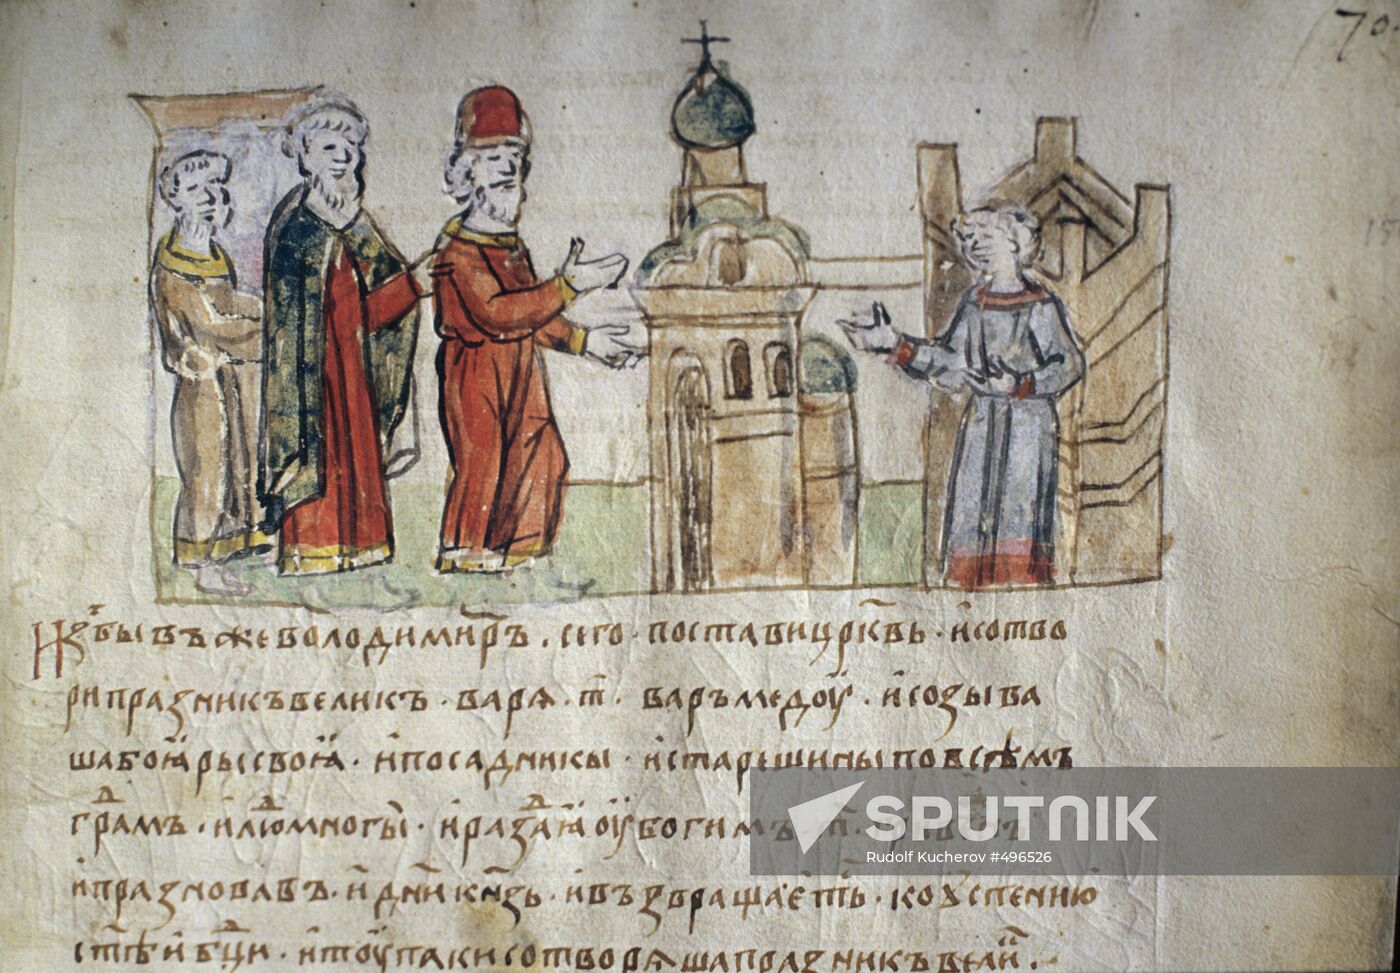 70.
Избывъжеволодимиръ. сего. поставицр҃квь. исотво
рипразникъвеликъ. варѧ. т҃. варъмедоу. исозыва
шабоꙗрысвоꙗ. ипосадникы. истарѣшиныповсѣмъ
градⷨмъ. илюⷣмногы. иразⷣаꙗоубогимъ. т҃.
ипразновавъ. и҃. дн҃икнѧзь. ивъзвращаєтьⷭ. коуспению
ст҃ѣи бц҃и. итоупакисотворѧшапразникъвели.
SPUTNIK
Rudolf Kucherov #496526